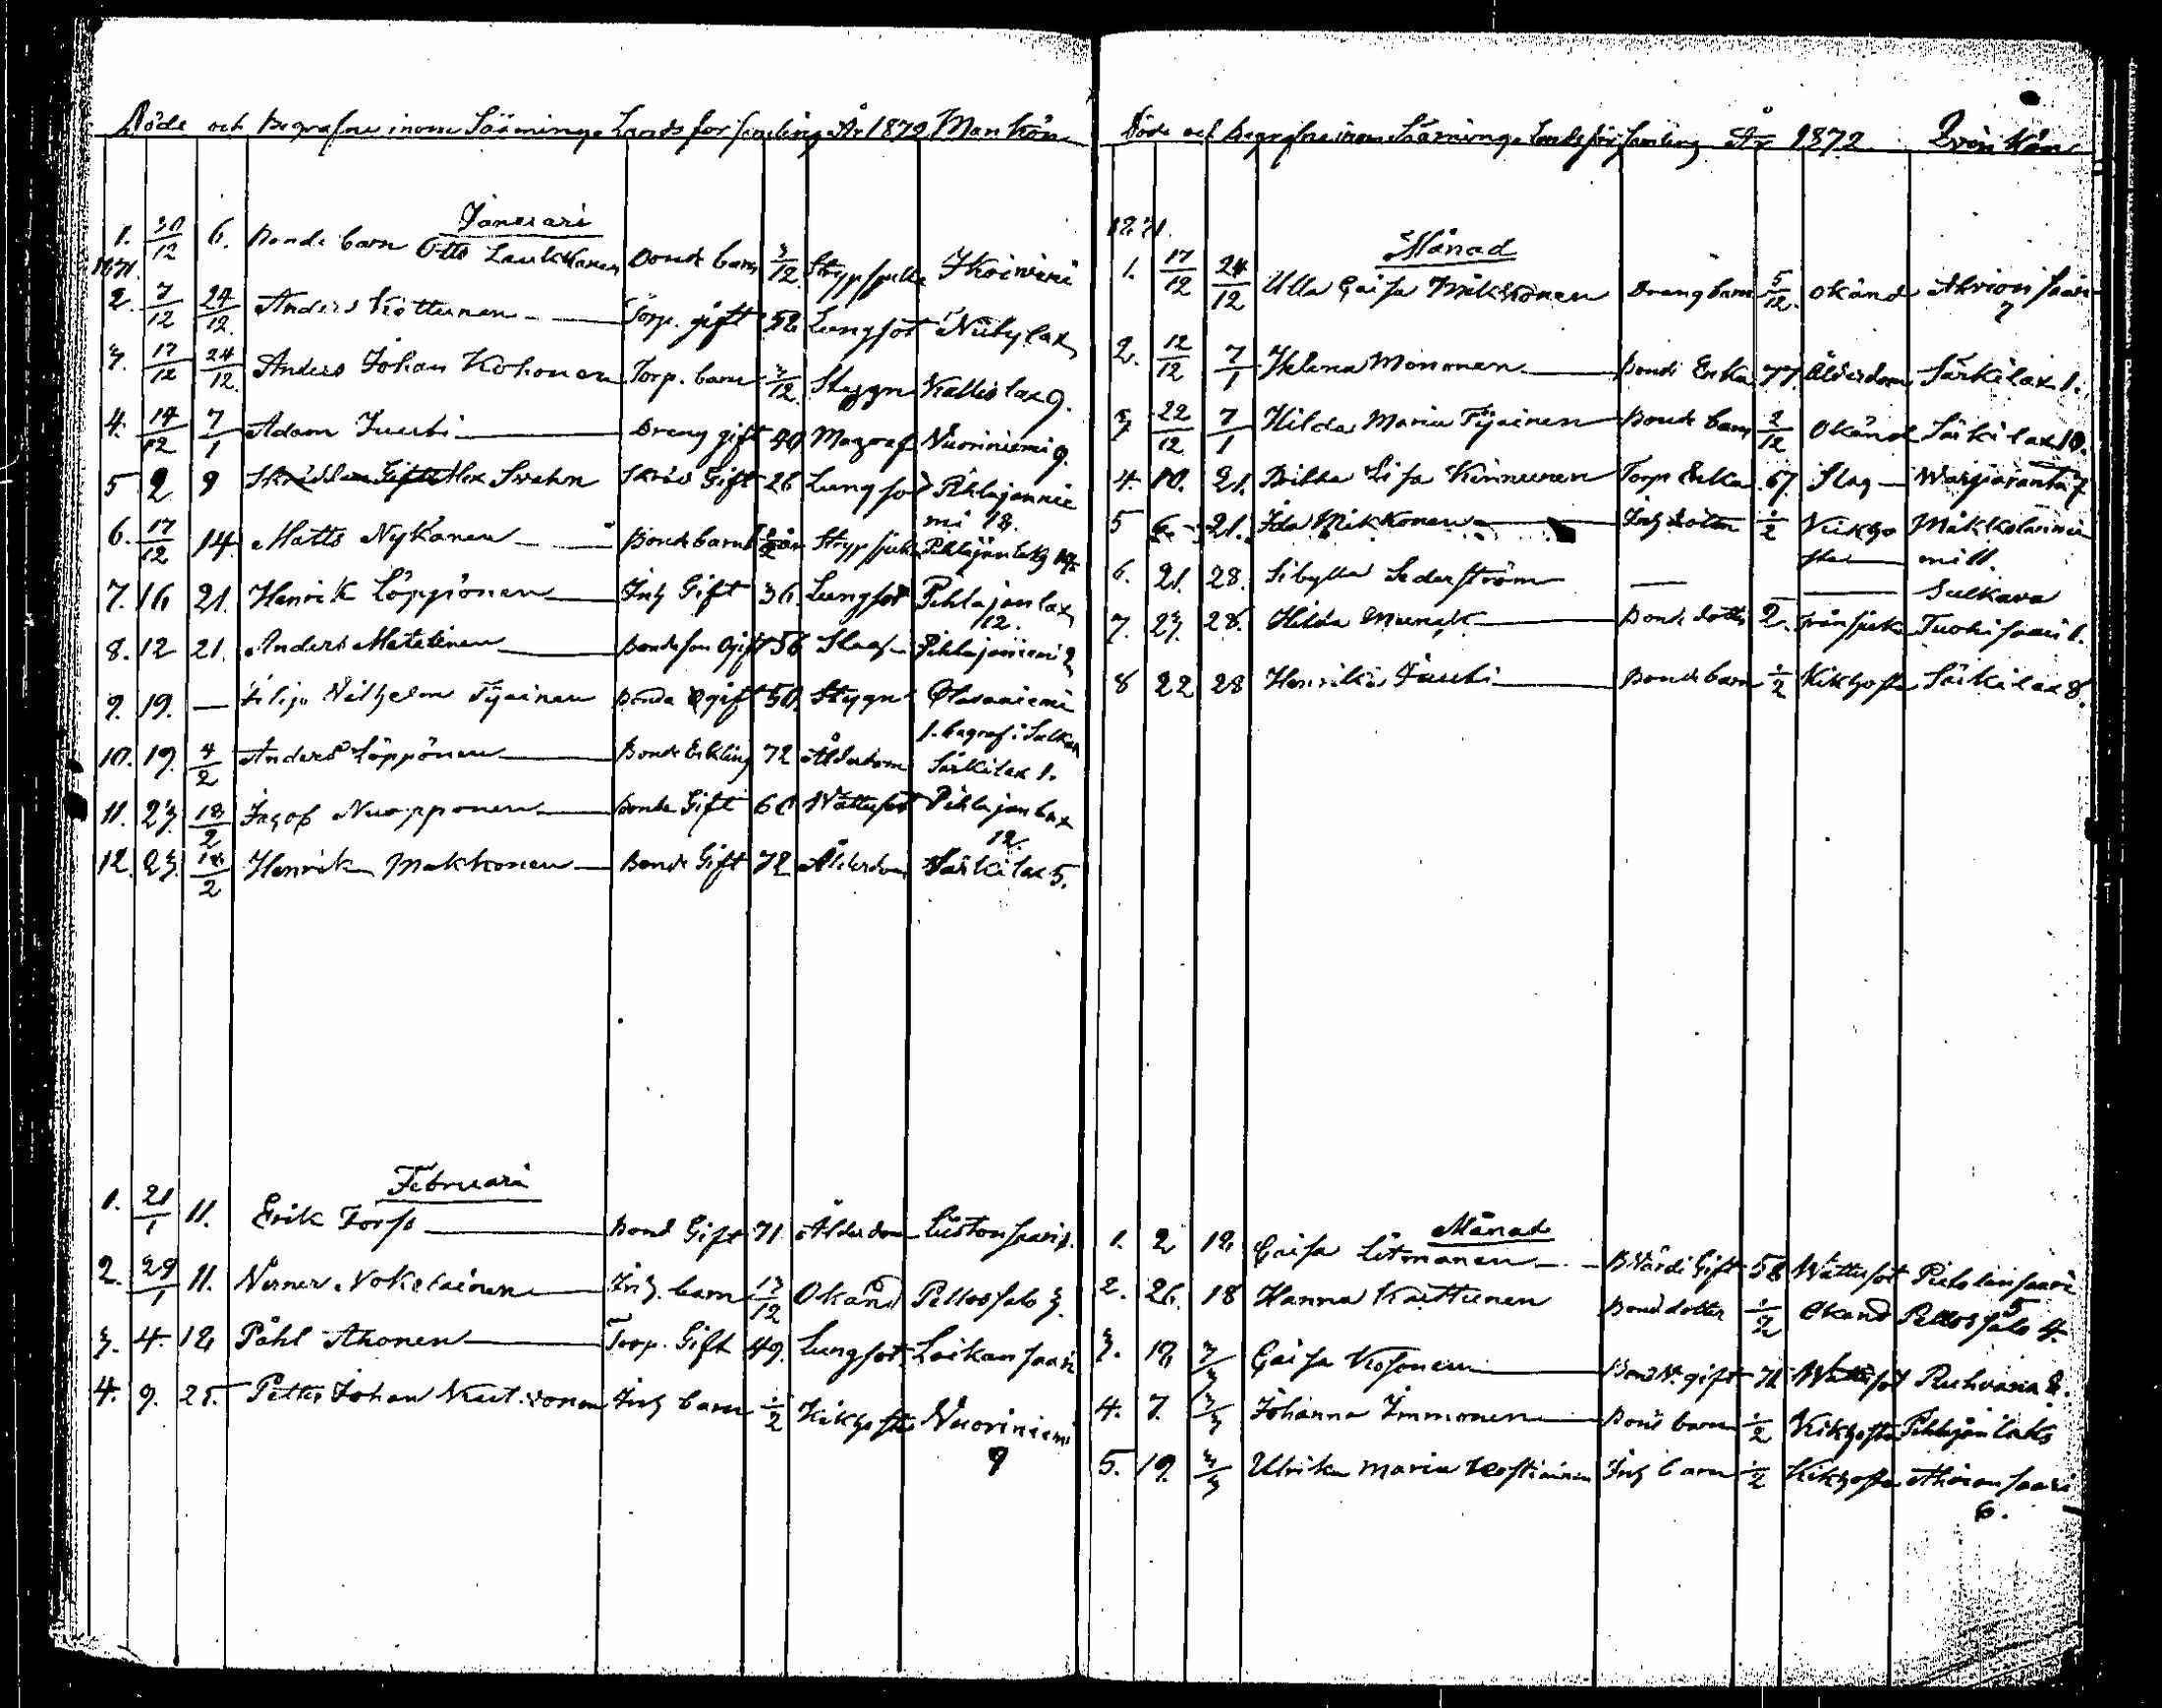 Döde och Begrafne inom Sääminge Landsförsamling År 1872 Mankön
Januari
1. 30/12 6. Bonde barn Otto Laukkanen Bonde barn 3/12 Strypsjuka Ikoiniemi
1871.
2. 7/12 24/12. Anders Kottunen Torp. gift 52. Lungsot Niitylax
3. 17/12 24/12. Anders Johan Kohonen Torp. barn 3/12. Styggn Kallislax 9.
4. 14/12 7/1 Adam Juuti Dreng gift 40 Magref Nuoriniemi 9.
5 2 9 Alex Svahn Skräd Gift 26 Lungsot Pihlajannie
mi 18.
6. 17/12 14 Matts Nykänen Bonde barn Strypsjuka Pihlajanlaks
7. 16 21. Henrik Löppönen Inh Gift 36. Lungsot Pihlajanlax
12.
8. 12 21. Anders Matilainen Bondeson Ogift 56 Slag Pihlajaniemi 2
9. 19. — Filip Vilhelm Tyainen Bonde Ogift 50. Styggn Olavaniemi
1. begraf i Sulkava
10. 19. 4/2 Anders Löppönen Bonde Enkling 72 Ålderdom Särkilax 1.
11. 23. 18/2 Jagob Nuopponen Bonde Gift 60 Wattusot Pihlajanlax
12.
12. 23. 18/2 Henrik Makkonen Bonde Gift 72 Ålderdom Särkilax 5.
Februari
1. 21/1 11. Erik Torss Bond Gift 71 Ålderdom Liistonsaari
2. 29/1 11. Verner Nokelainen Inh. barn 13/12 Okänd Pellossalo 3.
3. 4. 12 Påhl Ahonen Torp. Gift 49. Lungsot Loikansaari
4. 9. 25. Petter Johan Inh barn 1/2 Kikhosta Nuoriniemi
9
Döde och Begrafne inom Sääminge Landsförsamling År 1872 Qvinkön
1871.
Månad
1. 17/12 24/12 Ulla Caisa Mikkonen Dreng barn 5/12. Okänd Ahvionsaari
7
2. 12/12 7/1 Helena Moinonen Bonde Enka 77 Ålderdom Särkilax 1.
3. 22/12 7/1 Hilda Maria Tyainen Bonde barn 2/12 Okänd Särkilax 10.
4. 10. 21. Britta Lisa Kinnunen Torp Enka 67. Slag Warparanta 7
5 6. 21. Ida Mikkonen Inh dotter 1/2 Kikho Makkolanie
sta mi 11.
6. 21. 28. Sibylla Sederström — — Sulkava
7. 23. 28. Hilda Munck Bonde dotter 2. Tuohisaari 1.
8 22 28 Henrika Juuti Bonde barn 1/2 Kikhosta Särkilax 8.
Månad
1. 2 12 Caisa Litmanen B Värdi Gift 58 Wattusot Pietolansaari
5
2. 26. 18 Hanna Kaittunen Bond dotter 1/2 Okänd Pellossalo 4.
3. 12 3/3 Caisa Kosonen Bond V. gift 71 Wattusot Ruhvana 2.
4. 7. 3/3 Johanna Immonen Bond barn 1/2 Kikhosta Pihlajanlaks
5. 19. 3/3 Ulrika Maria Kostiainen Inh barn 1/2 Kikhosta Ahvionsaari
6.